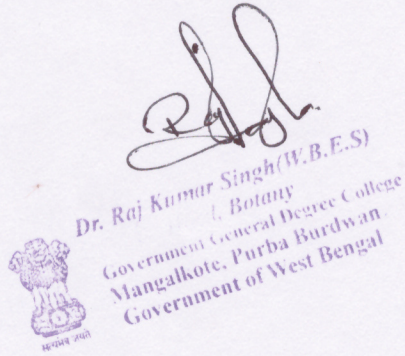 Dr. Raj Kumar Singh(W.B.E.S)
Botany
Government General Degree College
Mangalkote, Purba Burdwan
Government of West Bengal
सत्यमेव जयते